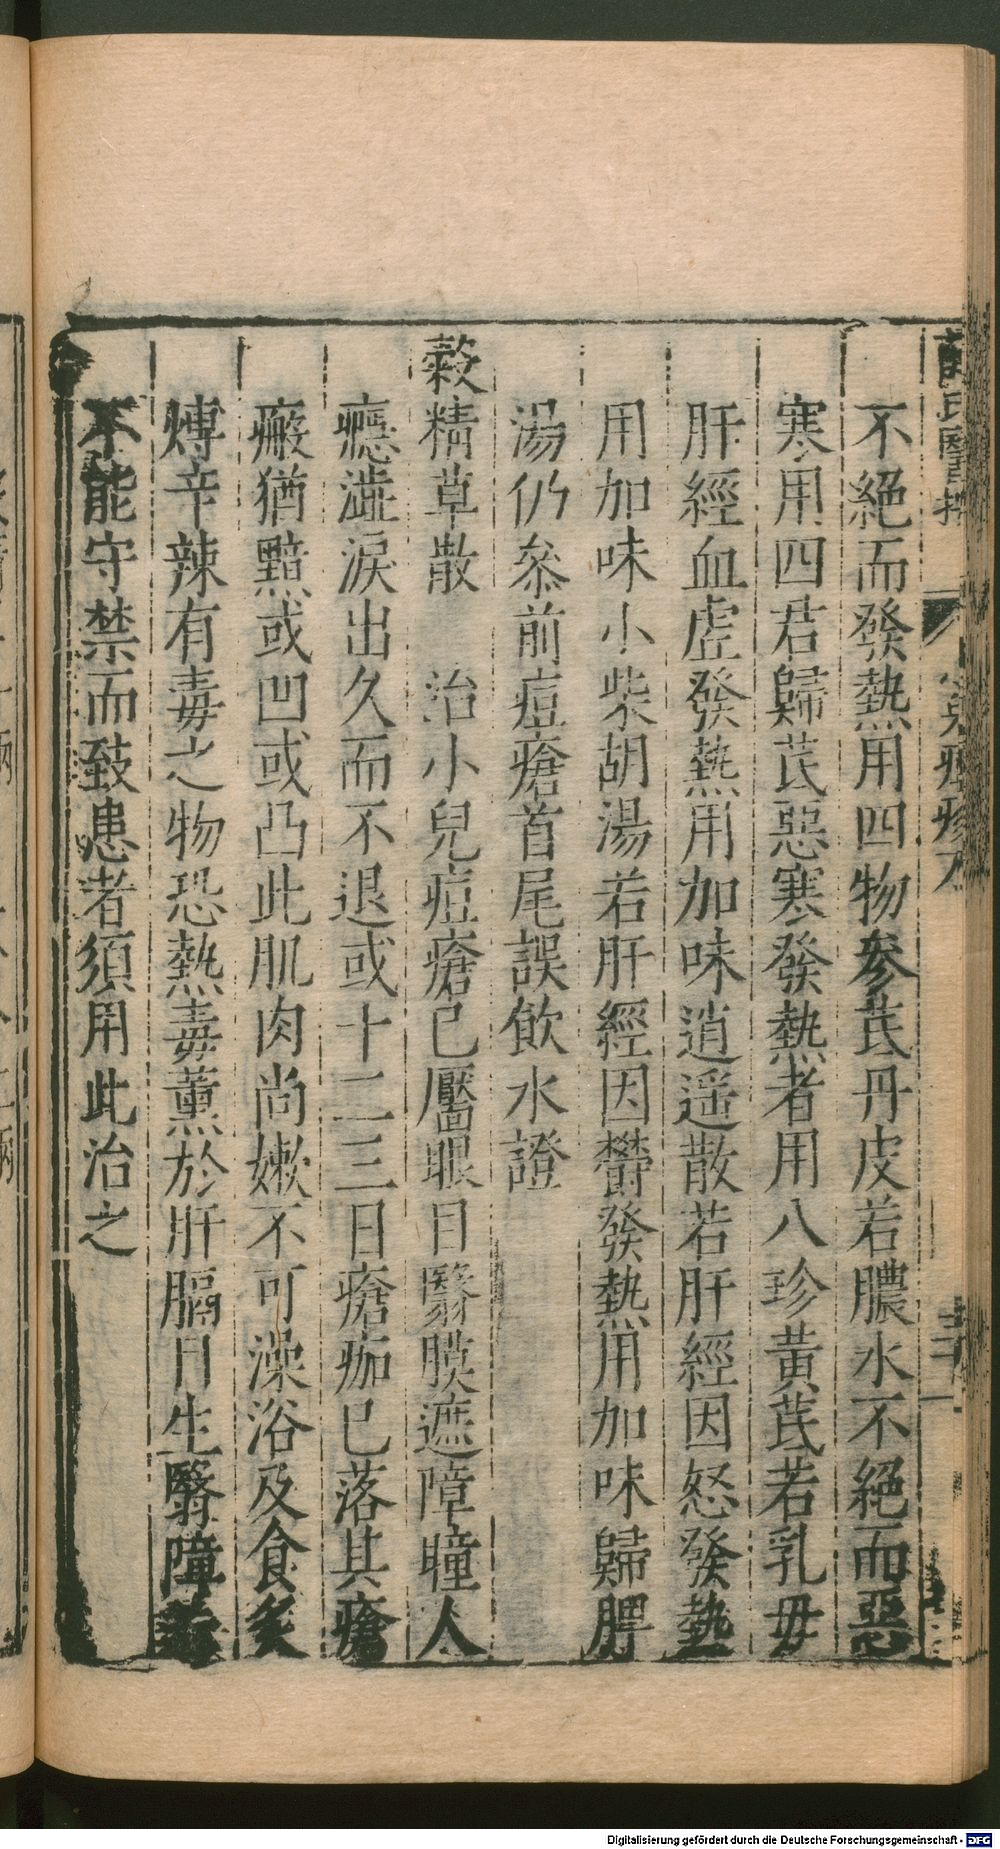 不絕而發熱用四物參芪丹皮若膿水不絕而惡
寒用四君歸芪惡寒發熱者用八珍黃芪若乳母
肝經血虛發熱用加味逍遥散若肝經因怒發熱
用加味小柴胡湯若肝經因欝發熱用加味歸脾
湯仍叅前痘瘡首尾誤飲水證
糓精草散　治小兒痘瘡已靨眼目翳膜遮障瞳人
癮澁淚出久而不退或十二三日瘡痂已落其瘡
瘢猶黯或凹或凸此肌肉尚嫩不可澡浴及食炙
煿辛辣有毒之物恐熱毒薰於肝膈目生翳障
不能守禁而致患者須用此治之
Digitalisierung gefördert durch die Deutsche Forschungsgemeinschaft - DFG